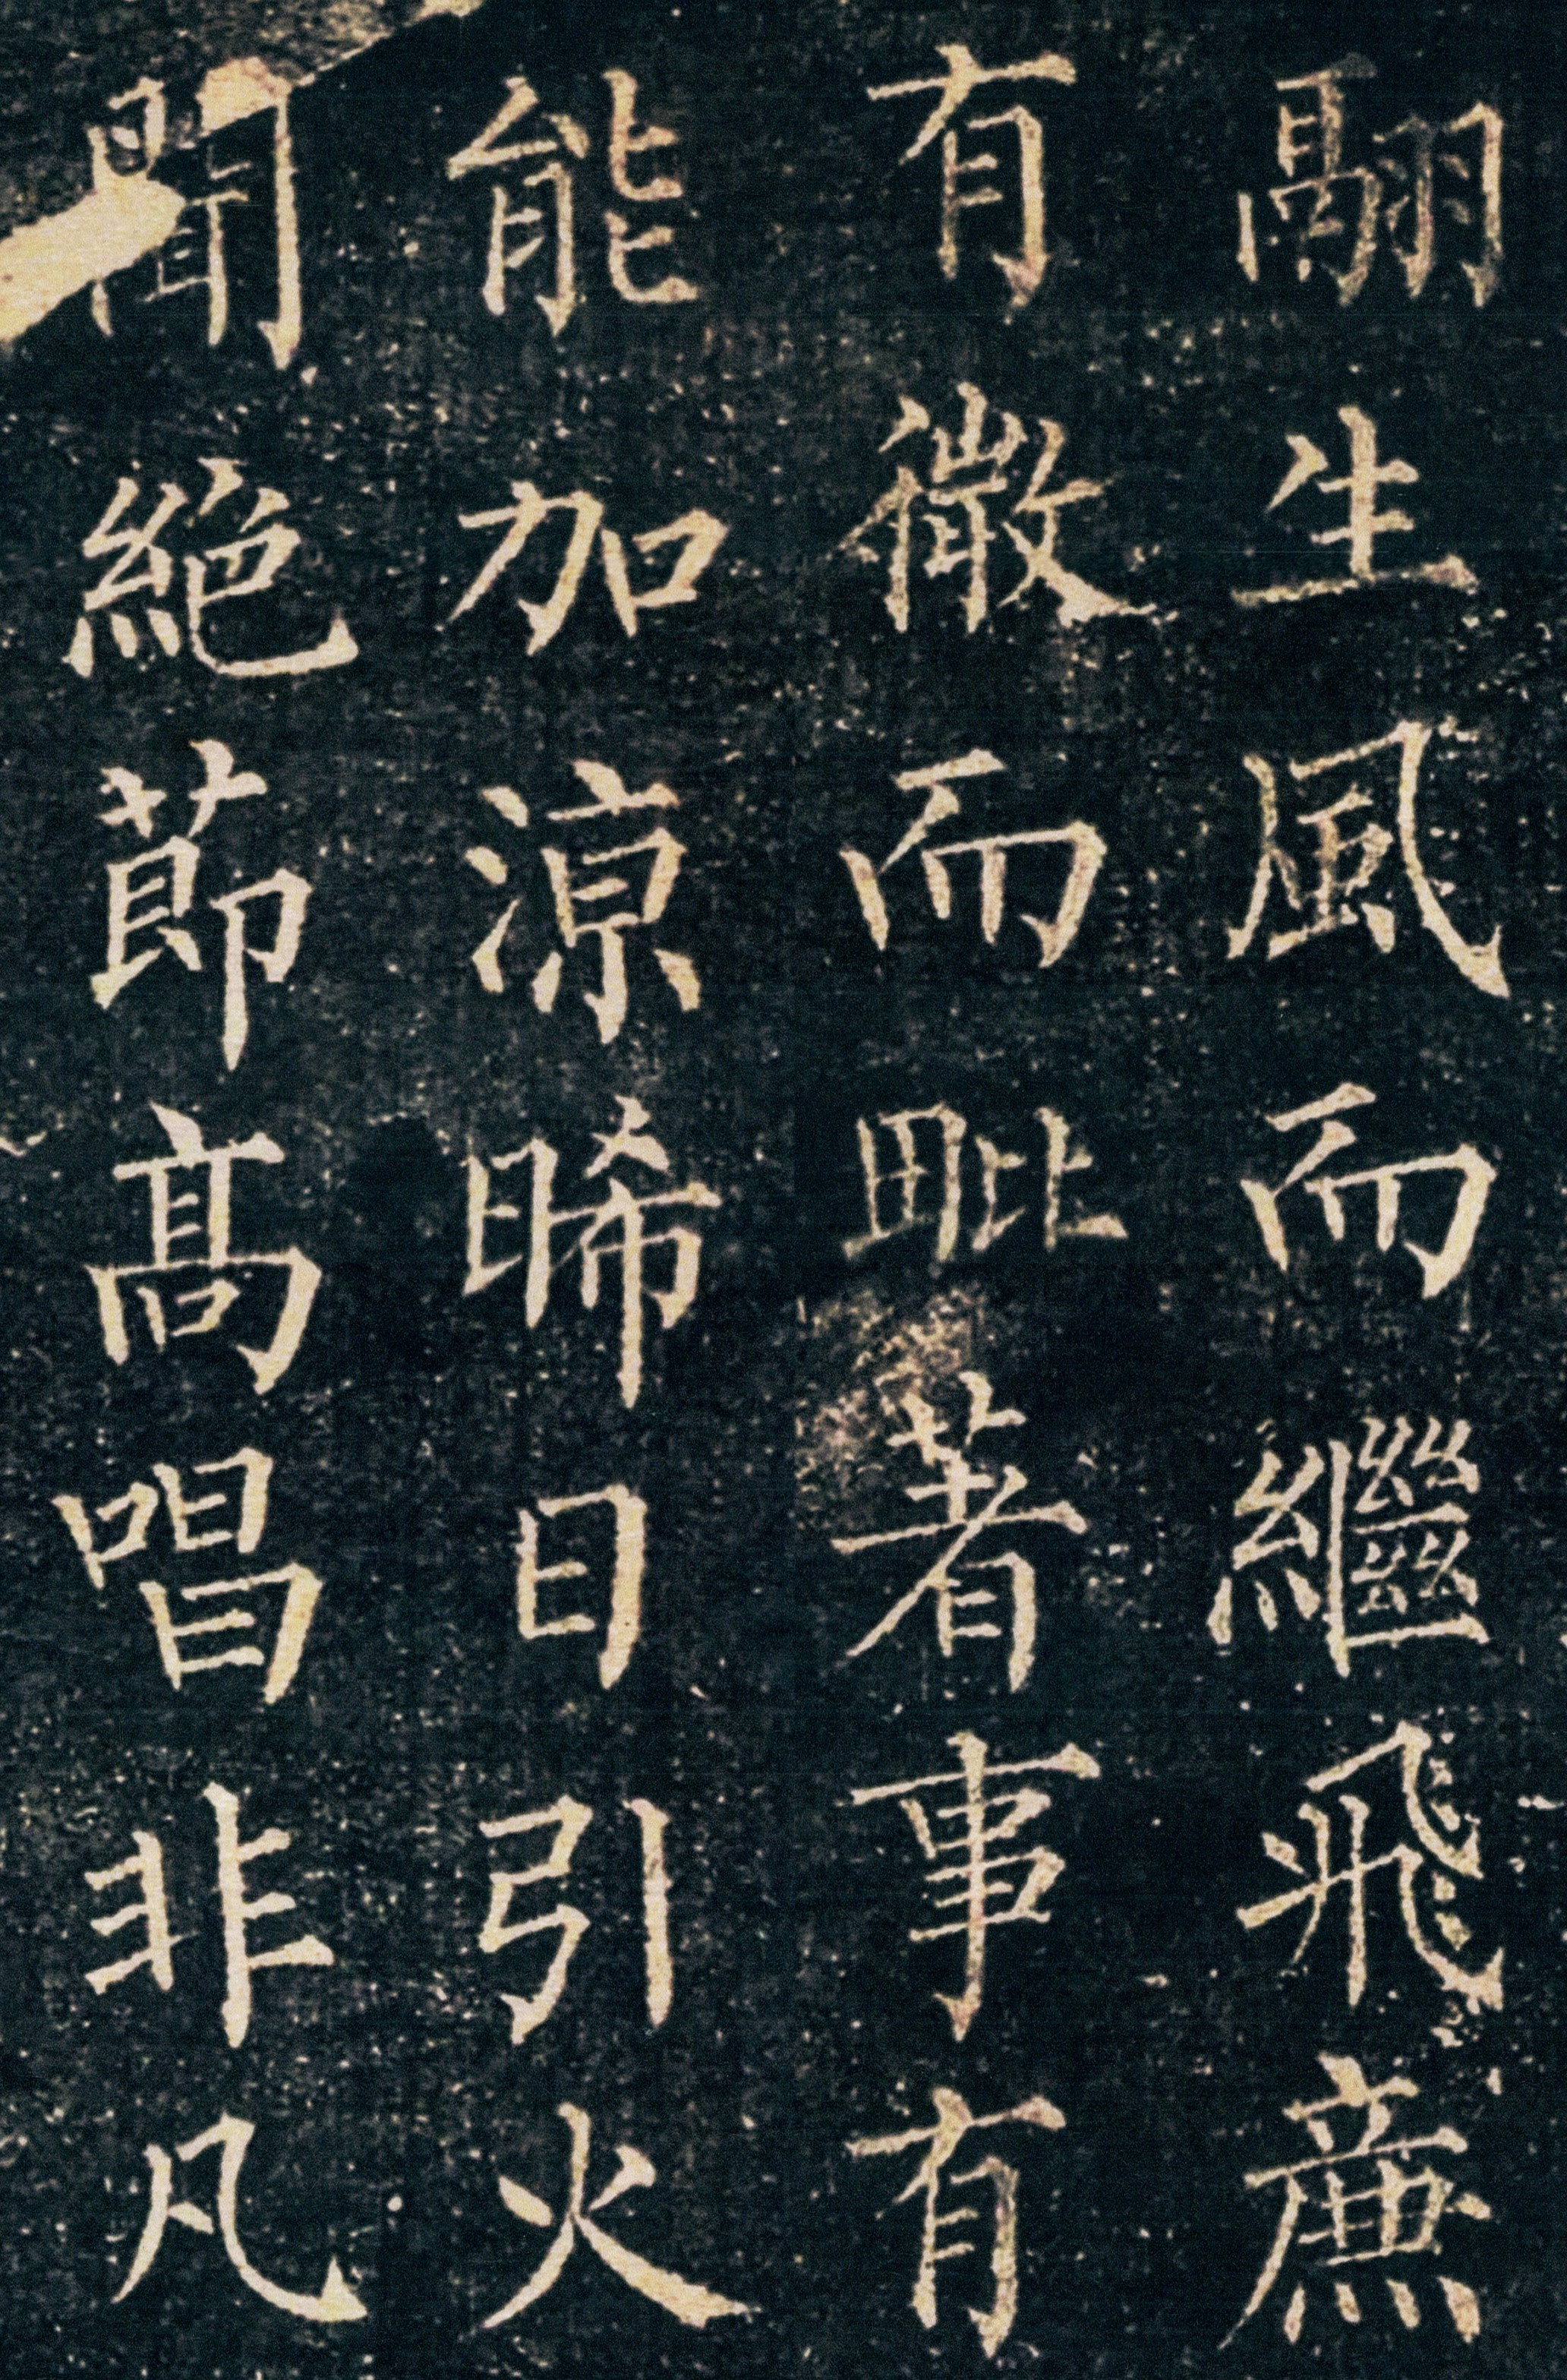 翮生風而繼飛廉
有微而毗著事有
能加涼晞日引火
聞絕節高唱非凡